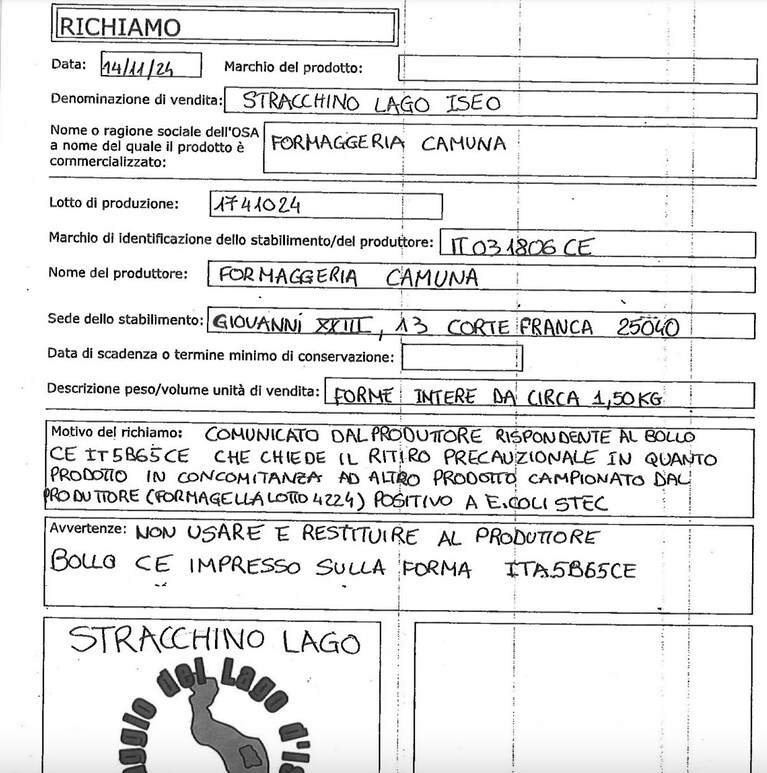 RICHIAMO
Data: 14/11/24 Marchio del prodotto:
Denominazione di vendita: STRACCHINO LAGO ISEO
Nome o ragione sociale dell'OSA
a nome del quale il prodotto è
commercializzato: FORMAGGERIA CAMUNA
Lotto di produzione: 1741024
Marchio di identificazione dello stabilimento/del produttore: IT 031806 CE
Nome del produttore: FORMAGGERIA CAMUNA
Sede dello stabilimento: GIOVANNI XXIII, 13 CORTE FRANCA 25040
Data di scadenza o termine minimo di conservazione:
Descrizione peso/volume unità di vendita: FORME INTERE DA CIRCA 1,50KG
Motivo del richiamo: COMUNICATO DAL PRODUTTORE RISPONDENTE AL BOLLO
CE IT5B65CE CHE CHIEDE IL RITIRO PRECAUZIONALE IN QUANTO
PRODOTTO IN CONCOMITANZA AD ALTRO PRODOTTO CAMPIONATO DAL
PRODUTTORE (FORMAGELLA LOTTO 4224) POSITIVO A E.COLI STEC
Avvertenze: NON USARE E RESTITUIRE AL PRODUTTORE
BOLLO CE IMPRESSO SULLA FORMA ITA5B65CE
STRACCHINO LAGO
aggio del Lago d'Is